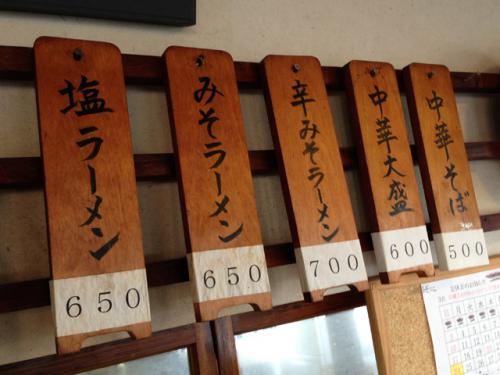 塩ラーメン
650
みそラーメン
650
辛みそラーメン
700
中華大盛
600
中華そば
500